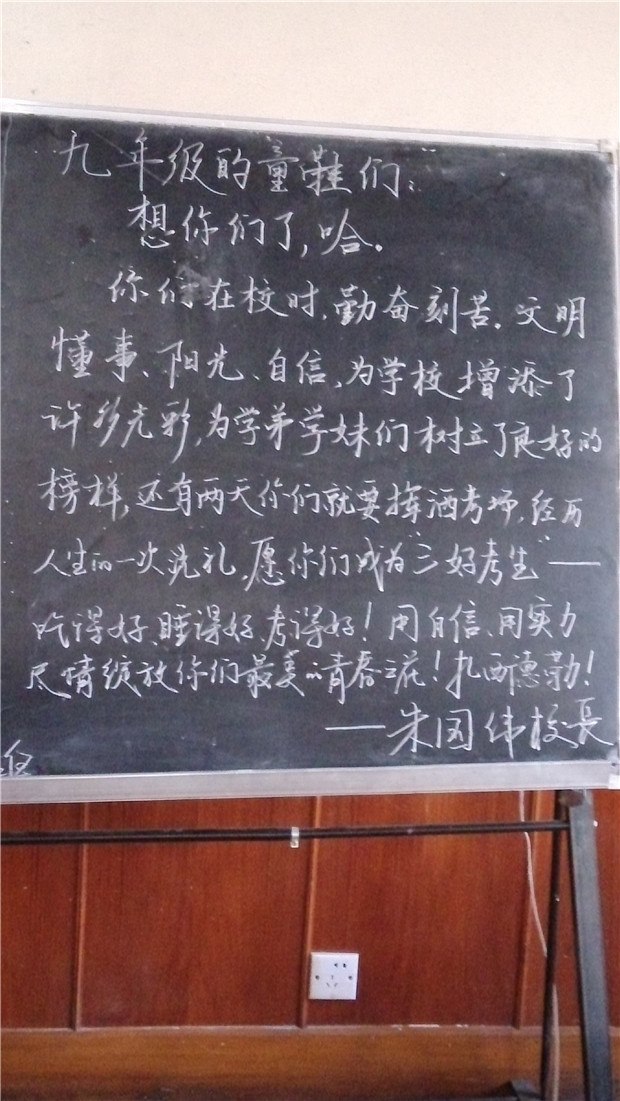 九年级的童鞋们：
想你们了，哈。
你们在校时，勤奋刻苦。文明
懂事、阳光、自信，为学校增添了
许多光彩，为学弟学妹们树立了良好的
榜样，还有两天你们就要挥洒考场，经历
人生的一次洗礼，愿你们成为“三好考生”——
吃得好、睡得好、考得好！用自信、用实力
尽情绽放你们最美的青春之花！扎西德勒！
——朱国伟校長